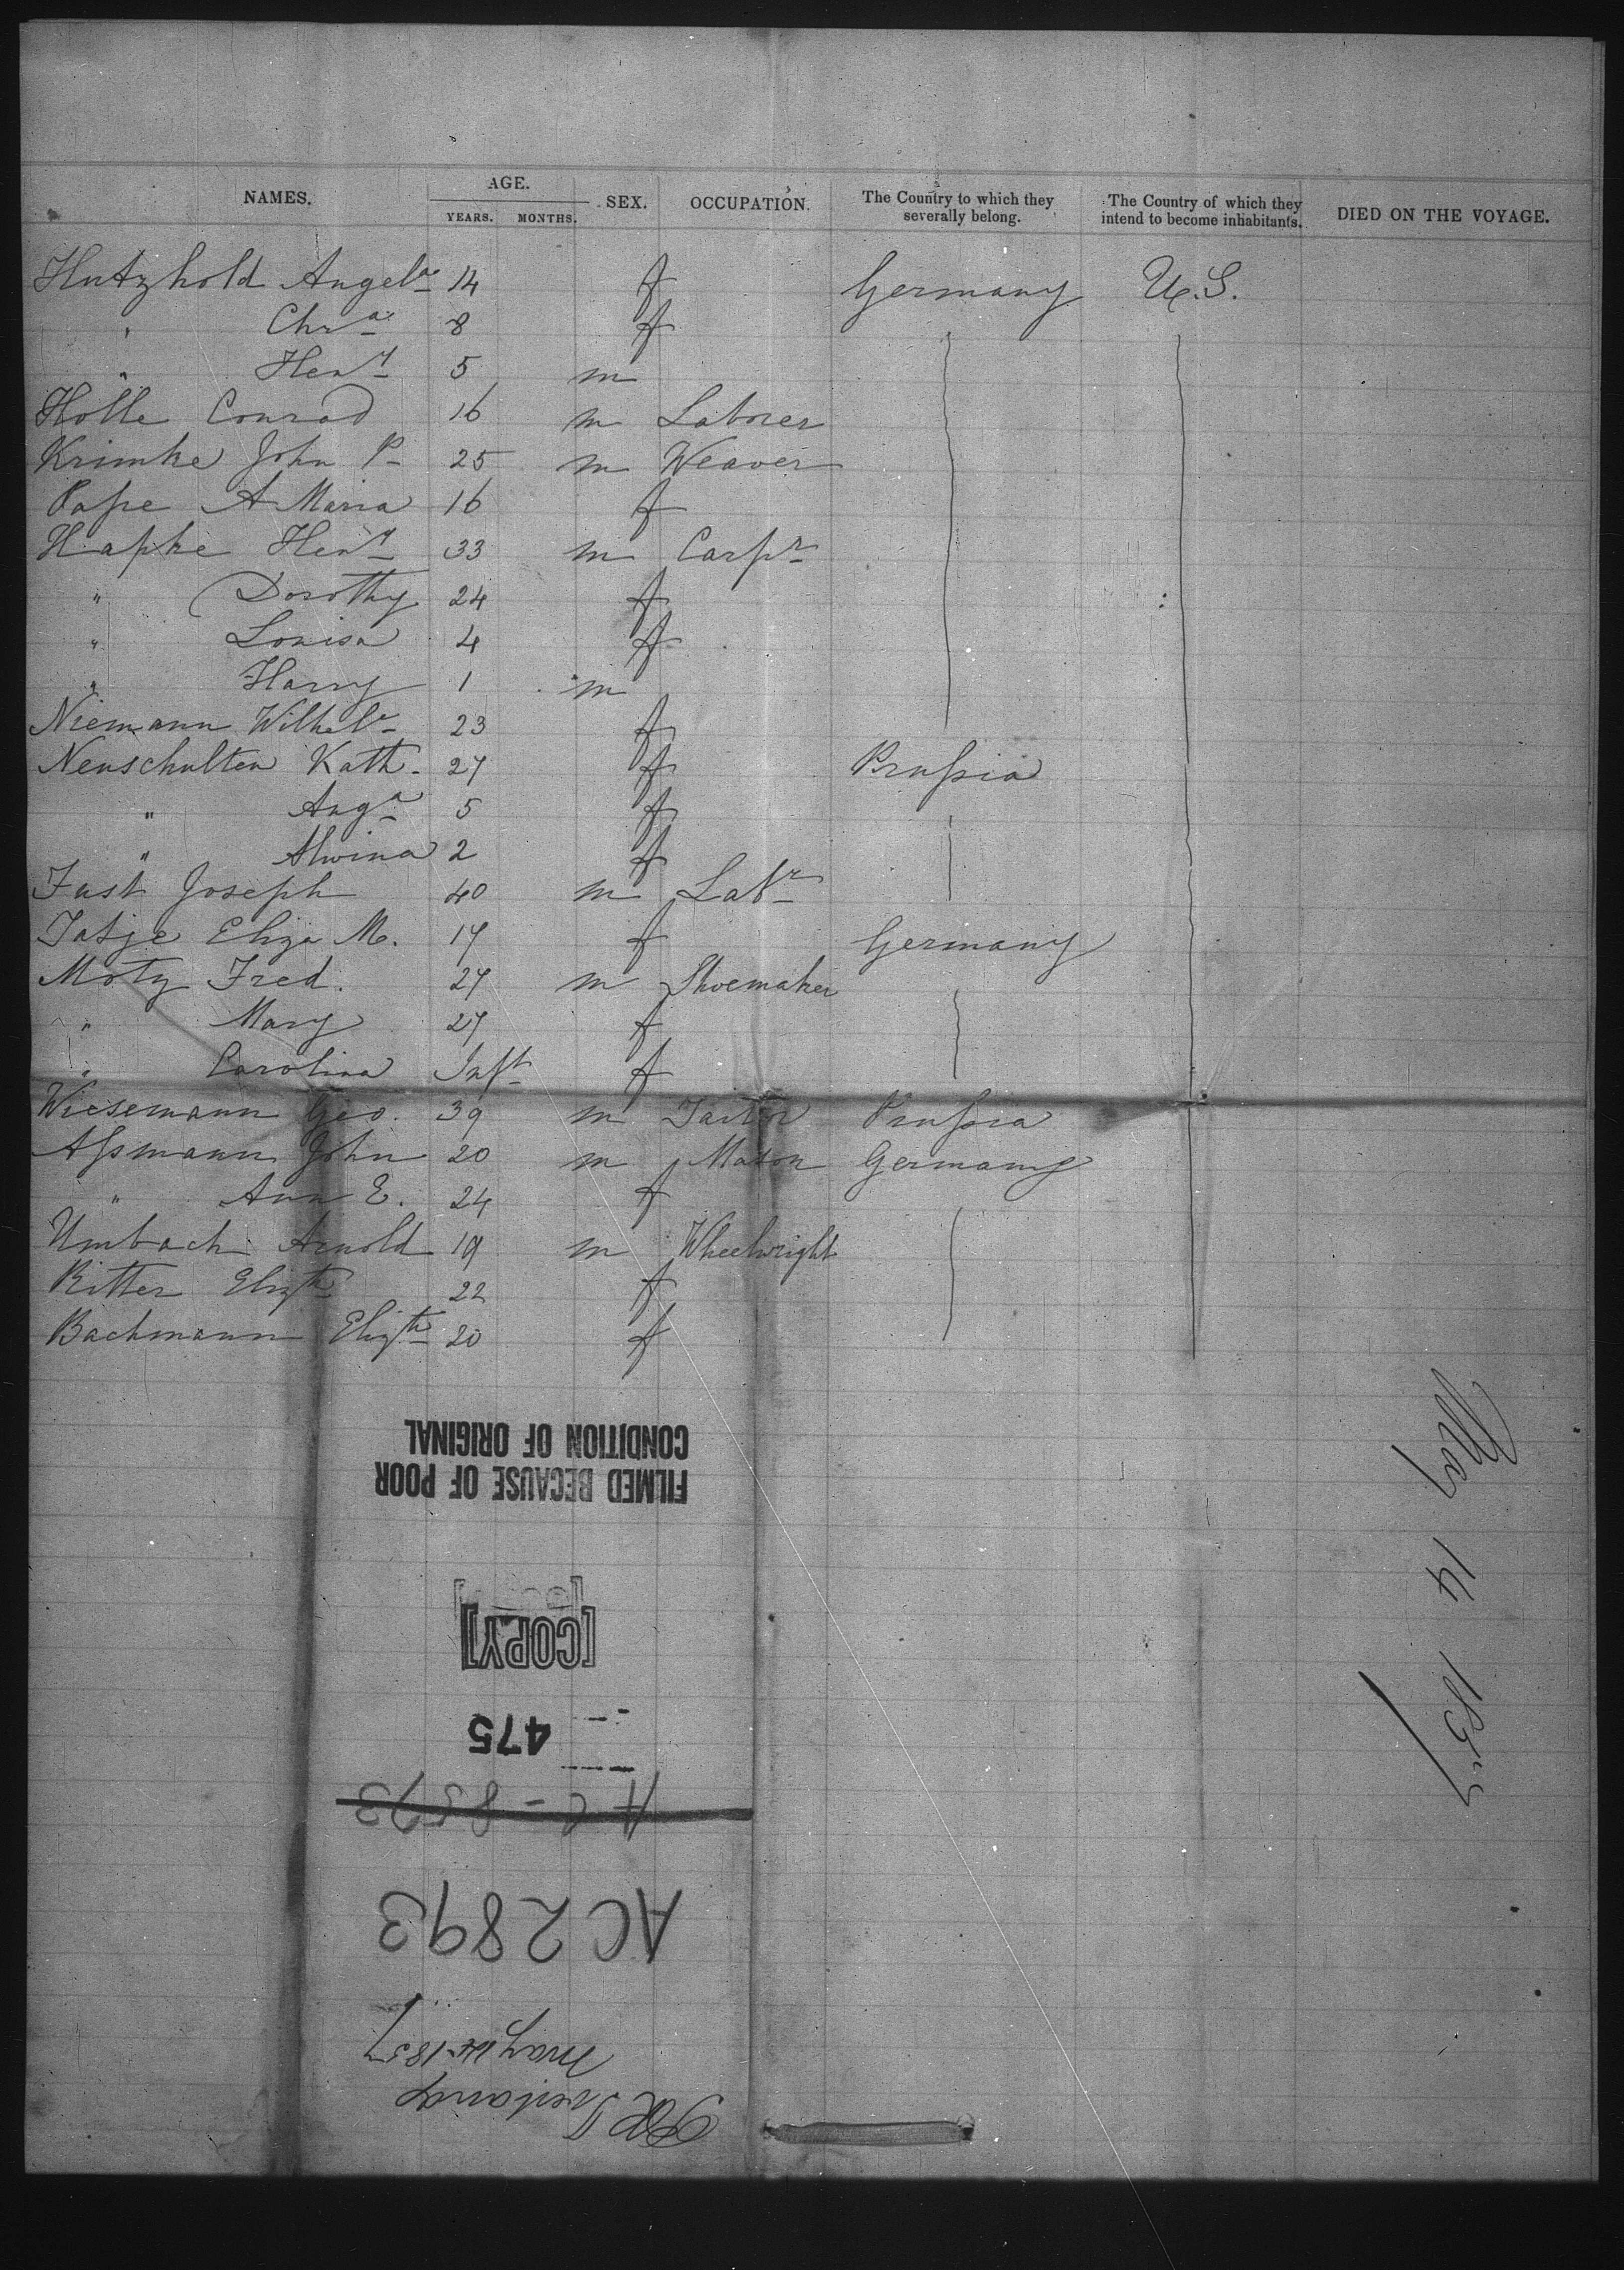 NAMES. AGE. YEARS. MONTHS. SEX. OCCUPATION. The Country to which they severally belong. The Country of which they intend to become inhabitants. DIED ON THE VOYAGE.
Hutzhold Angela 14 f Germany U.S.
" Chra 8 f
" Heny 5 m
Holle Conrad 16 m Laborer
Krimke John P 25 m Weaver
Pape A Maria 16 f
Hapke Heny 33 m Carpr
" Dorothy 24 f
" Louisa 4 f
" Harry 1 m
Niemann Wilhela 23 f
Neuschulten Kath. 27 f Prussia
" Auga 5 f
" Alwina 2 f
Fust Joseph 40 m Labr
Tatje Eliza M. 17 f Germany
Motz Fred. 27 m Shoemaker
" Mary 27 f
" Carolina Inft f
Wiesemann Geo. 39 m Tailor Prussia
Assmann John 20 m Mason Germany
" Ann E. 24 f
Umbach Arnold 19 m Wheelwright
Ritter Elizth 22 f
Bachmann Elizth 20 f
May 14 1857
FILMED BECAUSE OF POOR
CONDITION OF ORIGINAL
[COPY]
475
AC-8573
AC 2893
May 14 1857